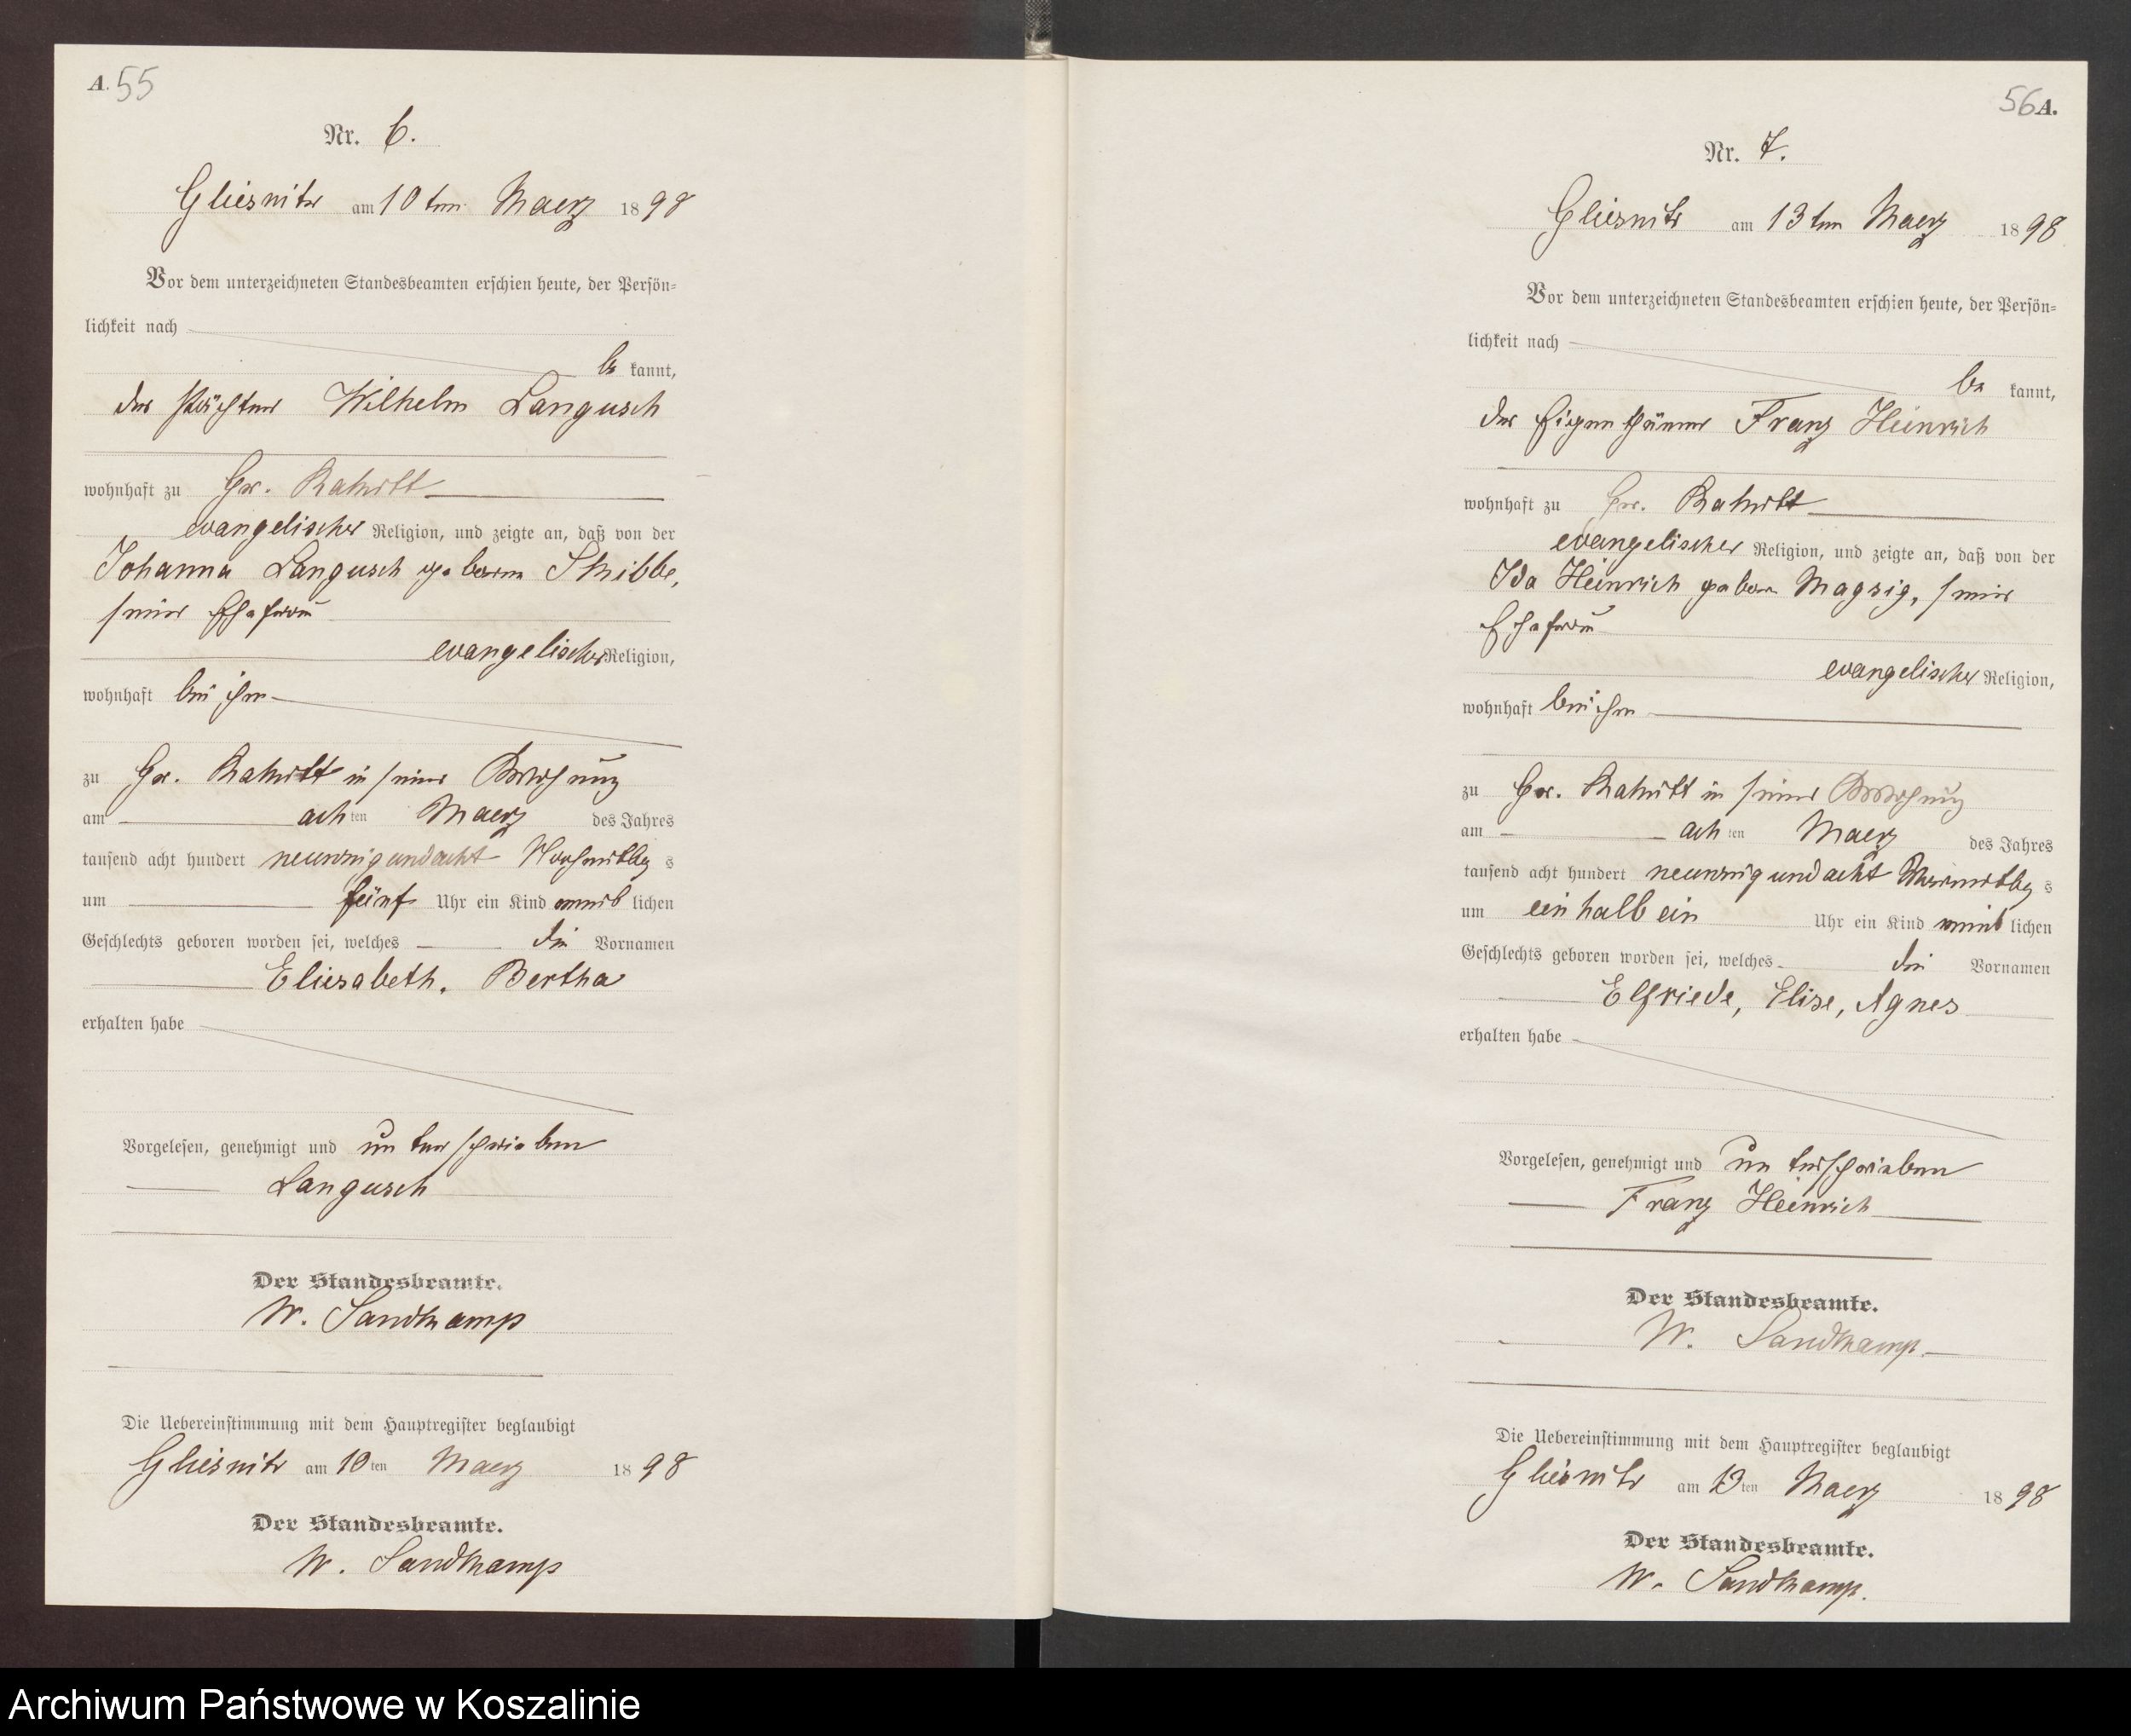 A. 55
Nr. 6.
Gliesnitz am 10ten Maerz 1898
Vor dem unterzeichneten Standesbeamten erschien heute, der Persön-
lichkeit nach
be kannt,
der Pächter Wilhelm Langusch
wohnhaft zu Gr.
evangelischer Religion, und zeigte an, daß von der
Johanna Langusch geborene Skibbe,
seiner Ehefrau
evangelischer Religion,
wohnhaft bei ihm
zu Gr. in seiner Wohnung
am achten Maerz des Jahres
tausend acht hundert neunzig und acht Nachmittags
um fünf Uhr ein Kind weiblichen
Geschlechts geboren worden sei, welches die Vornamen
Eliesabeth, Bertha
erhalten habe
Vorgelesen, genehmigt und unterschrieben
Langusch
Der Standesbeamte.
W. Sandkamp
Die Uebereinstimmung mit dem Hauptregister beglaubigt
Gliesnitz am 10ten Maerz 1898
Der Standesbeamte.
W. Sandkamp
56 A.
Nr. 7.
Gliesnitz am 13ten Maerz 1898
Vor dem unterzeichneten Standesbeamten erschien heute, der Persön-
lichkeit nach
be kannt,
der Eigenthümer Franz Heinrich
wohnhaft zu Gr.
evangelischer Religion, und zeigte an, daß von der
Ida Heinrich geboren Magsig, seiner
Ehefrau
evangelischer Religion,
wohnhaft bei ihm
zu Gr. in seiner Wohnung
am achten Maerz des Jahres
tausend acht hundert neunzig und acht Vormittags
um ein halb ein Uhr ein Kind weiblichen
Geschlechts geboren worden sei, welches die Vornamen
Elfriede, Elise, Agnes
erhalten habe
Vorgelesen, genehmigt und unterschrieben
Franz Heinrich
Der Standesbeamte.
W. Sandkamp.
Die Uebereinstimmung mit dem Hauptregister beglaubigt
Gliesnitz am 13ten Maerz 1898
Der Standesbeamte.
W. Sandkamp.
Archiwum Państwowe w Koszalinie